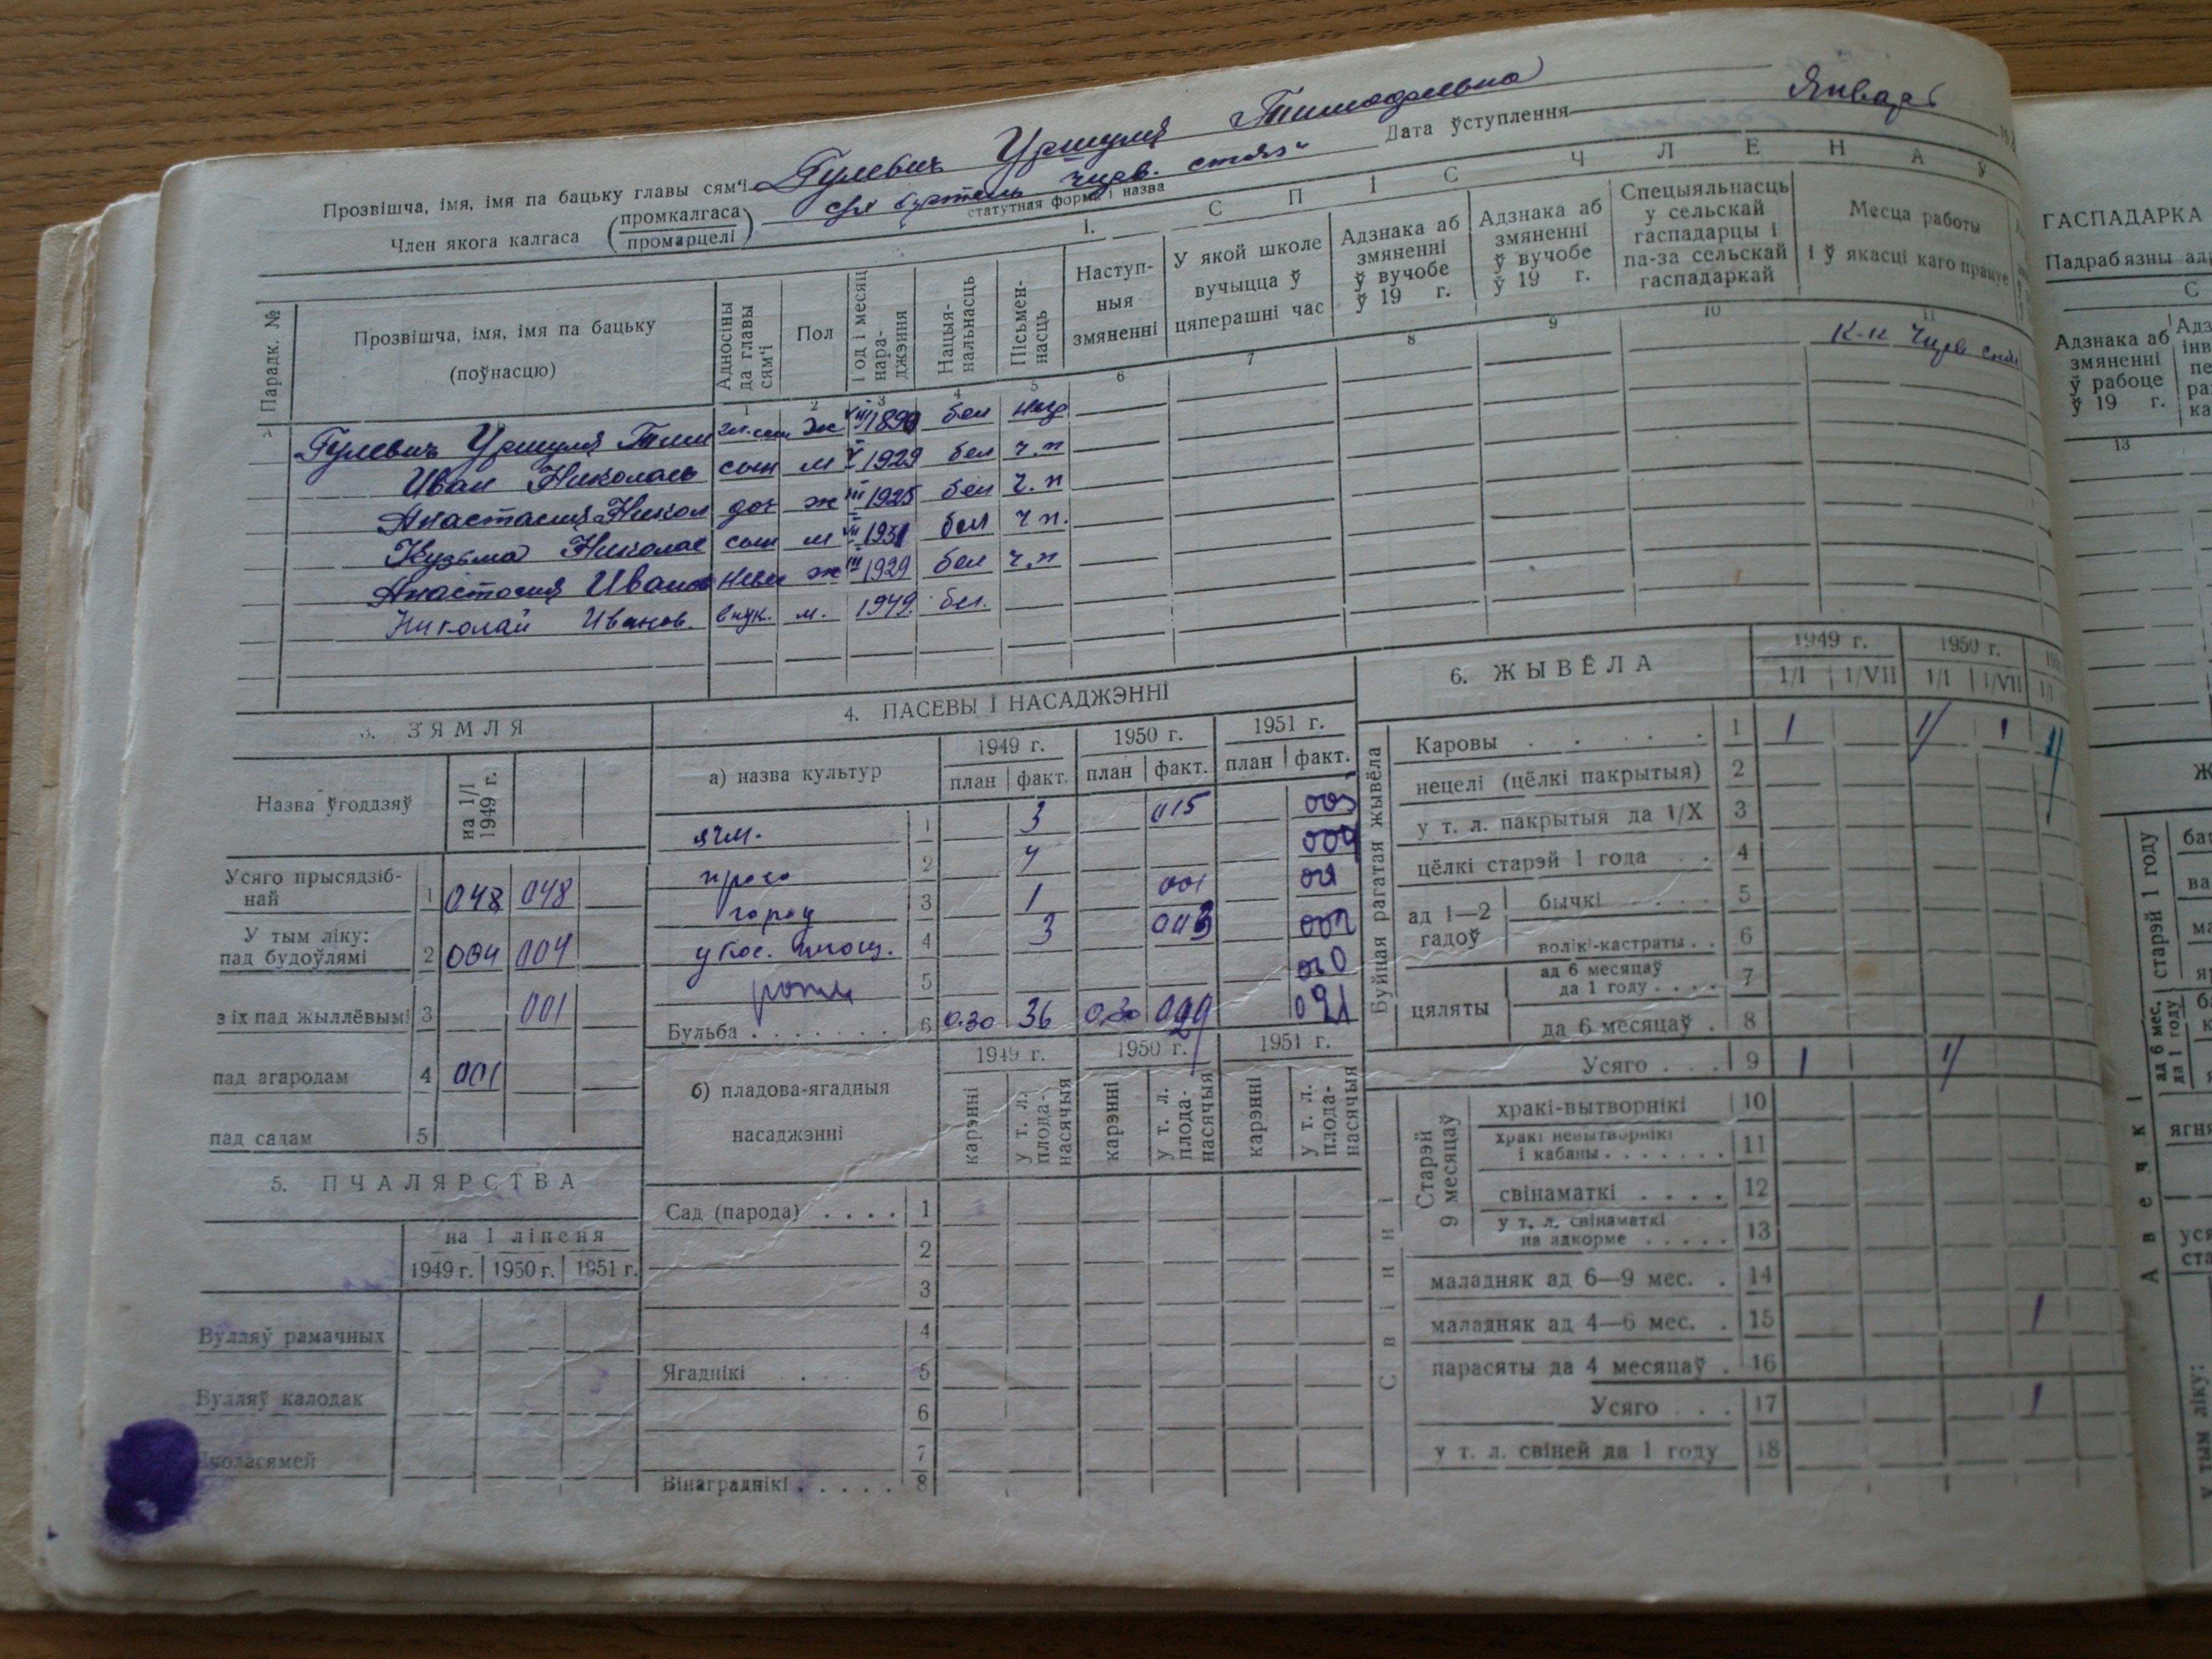 Прозвішча, імя, імя па бацьку главы сям'і Гулевич Уршуля Тимофеевна
Член якога калгаса (промкалгаса промарцелі) с/х артель Чирв. стяг
статутная форма і назва
Дата ўступлення Январь
1. СПІС ЧЛЕНАЎ
Парадк. №
Прозвішча, імя, імя па бацьку (поўнасцю)
Адносіны да главы сям'і
Пол
Год і месяц нараджэння
Нацыянальнасць
Пісьменнасць
Наступныя змяненні
У якой школе вучыцца ў цяперашні час
Адзнака аб змяненні ў вучобе ў 19 г.
Адзнака аб змяненні ў вучобе ў 19 г.
Спецыяльнасць у сельскай гаспадарцы і па-за сельскай гаспадаркай
Месца работы і ў якасці каго працуе
1 2 3 4 5 6 7 8 9 10 11
Гулевич Уршуля Тим гл. сем ж VIII 1890 бел негр К-к Чирв стяг
Иван Николаев сын м V 1929 бел ч.п
Анастасия Никол доч ж III 1925 бел ч.п
Кузьма Николае сын м VII 1931 бел ч п.
Анастасия Иванов невес ж III 1929 бел ч.п
Николай Иванов. внук. м. 1949. бел.
3. ЗЯМЛЯ
Назва ўгоддзяў на 1/I 1949 г.
Усяго прысядзібнай 1 048 048
У тым ліку: пад будоўлямі 2 004 004
з іх пад жыллёвымі 3 001
пад агародам 4 001
пад садам 5
5. ПЧАЛЯРСТВА
на 1 ліпеня
1949 г. 1950 г. 1951 г.
Вулляў рамачных
Вулляў калодак
Пчоласямей
4. ПАСЕВЫ І НАСАДЖЭННІ
а) назва культур
1949 г. 1950 г. 1951 г.
план факт. план факт. план факт.
ячм. 1 3 015 003
просо 2 4 004
город 3 1 001 001
убос. площ. 4 3 003 002
5 010
Бульба 6 0.30 36 0.30 029 021
б) пладова-ягадныя насаджэнні
1949 г. 1950 г. 1951 г.
карэнні у т. л. плоданасячыя карэнні у т. л. плоданасячыя карэнні у т. л. плоданасячыя
Сад (парода) 1
2
3
4
Ягаднікі 5
6
7
Вінаграднікі 8
6. ЖЫВЁЛА
1949 г. 1950 г.
1/I 1/VII 1/I 1/VII 1/I
Буйная рагатая жывёла
Каровы 1 1 1 1 1
нецелі (цёлкі пакрытыя) 2
у т. л. пакрытыя да 1/X 3
цёлкі старэй 1 года 4
ад 1—2 гадоў
бычкі 5
волікі-кастраты 6
цяляты
ад 6 месяцаў да 1 году 7
да 6 месяцаў 8
Усяго 9 1 1
Свінні
Старэй 9 месяцаў
хракі-вытворнікі 10
хракі невытворнікі і кабаны 11
свінаматкі 12
у т. л. свінаматкі на адкорме 13
маладняк ад 6—9 мес. 14
маладняк ад 4—6 мес. 15 1
парасяты да 4 месяцаў 16
Усяго 17 1
у т. л. свіней да 1 году 18
ГАСПАДАРКА
Падрабязны
Адзнака аб змяненні ў рабоце ў 19 г.
13
старэй 1 году
ад 6 мес. да 1 году
Авечкі
у тым ліку: